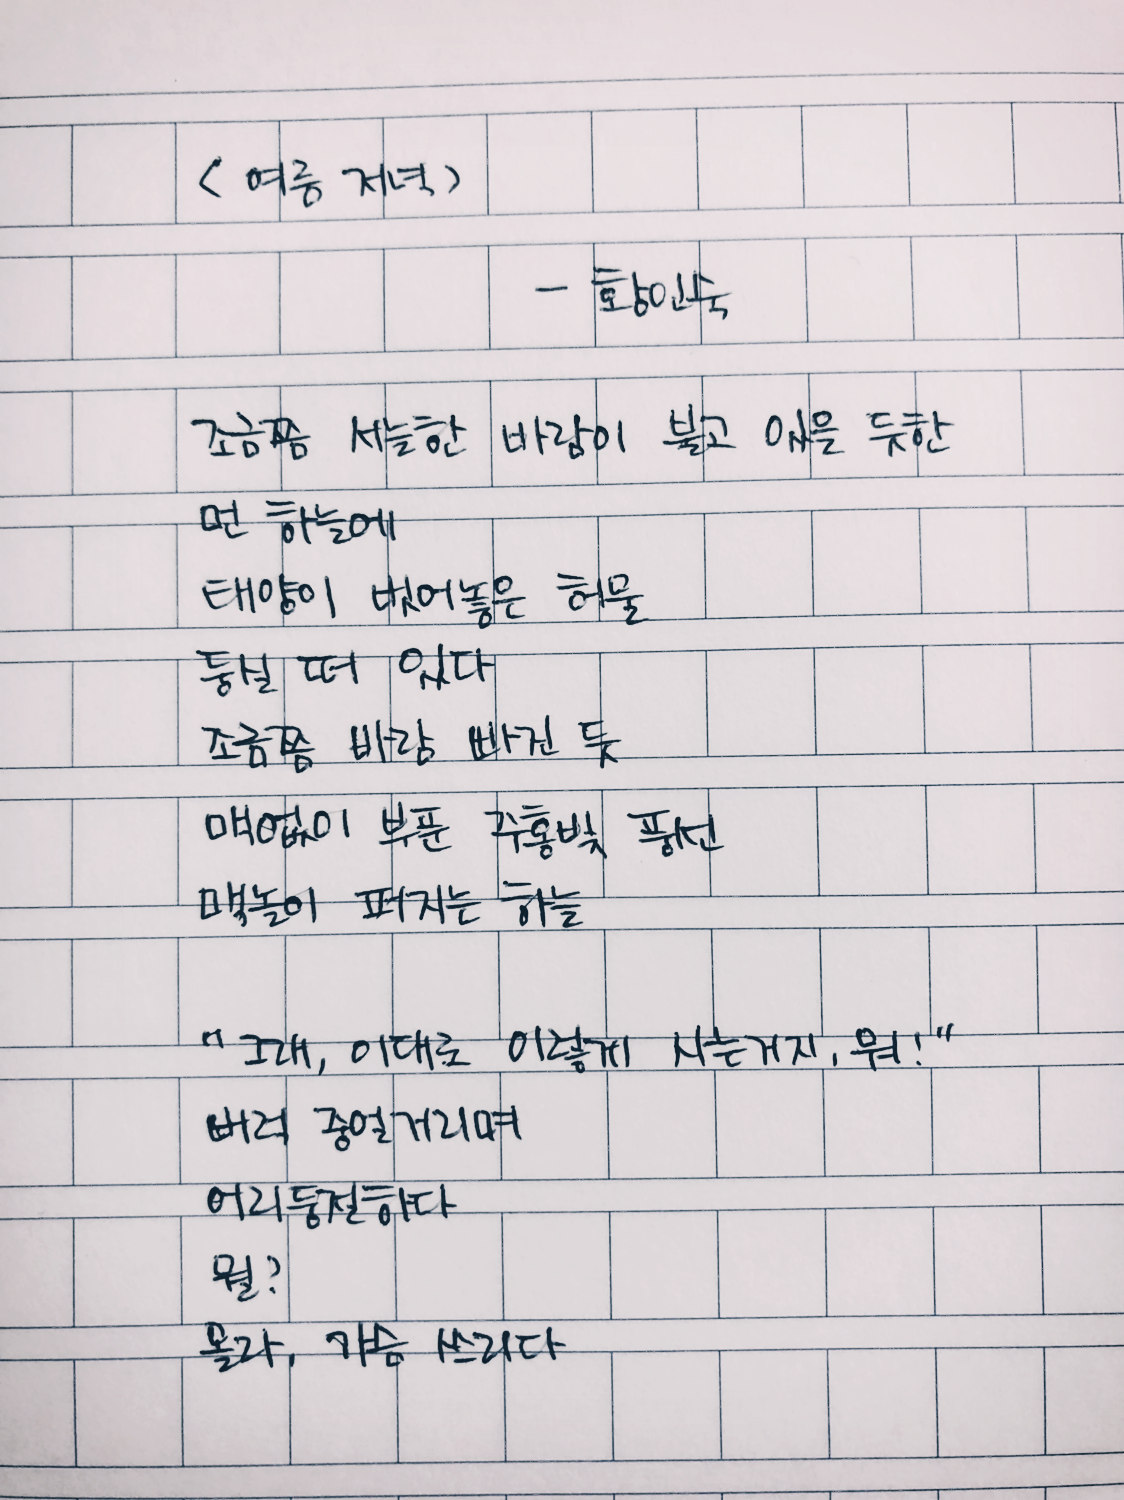 <여름 저녁>
- 황인숙
조금쯤 서늘한 바람이 불고 있을 듯한
먼 하늘에
태양이 벗어놓은 허물
둥실 떠 있다
조금쯤 바람 빠진 듯
맥없이 부푼 주홍빛 풍선
맥놀이 퍼지는 하늘
"그래, 이대로 이렇게 사는거지, 뭐!"
버럭 중얼거리며
어리둥절하다
뭘?
몰라, 가슴 쓰리다